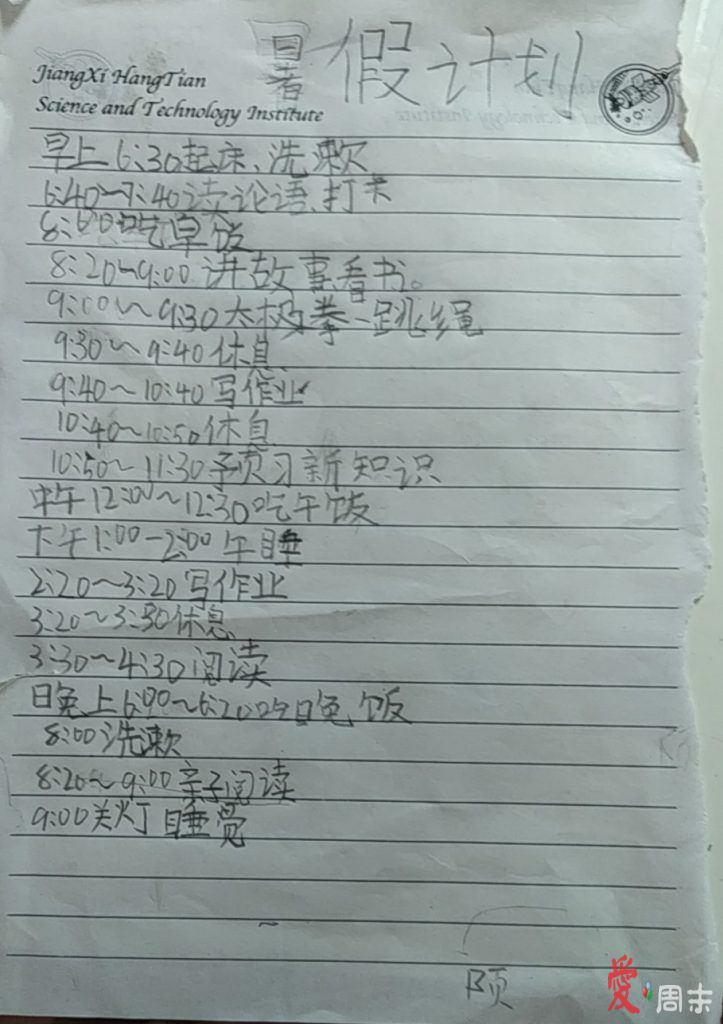 暑假计划
JiangXi HangTian
Science and Technology Institute
早上6:30起床、洗漱
6:40~7:40读论语、打卡
8:00吃早饭
8:20~9:00讲故事看书。
9:00~9:30太极拳-跳绳
9:30~9:40休息
9:40~10:40写作业
10:40~10:50休息
10:50~11:30预习新知识
中午12:00~12:30吃午饭
下午1:00-2:00午睡
2:20~3:20写作业
3:20~3:30休息
3:30~4:30阅读
晚上6:00~6:20吃晚饭
8:00洗漱
8:20~9:00亲子阅读
9:00关灯睡觉
愛周末